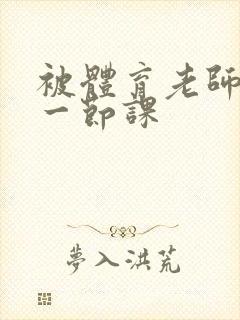 被體育老師
一節課
夢入洪荒